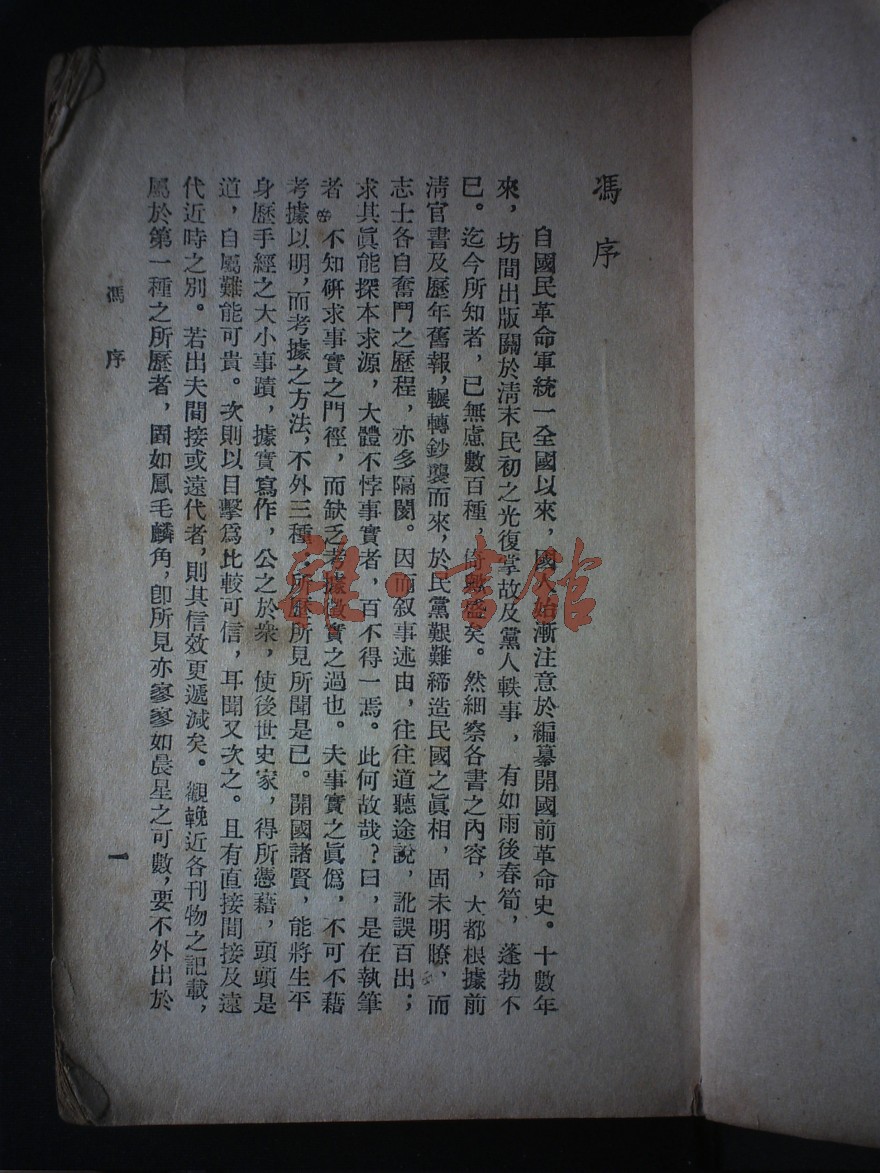 馮序
自國民革命軍統一全國以來,國人始漸注意於編纂開國前革命史。十數年
來,坊間出版關於清末民初之光復掌故及黨人軼事,有如雨後春筍,蓬勃不
已。迄今所知者,已無慮數百種,倚歟盛矣。然細察各書之內容,大都根據前
清官書及歷年舊報,輾轉鈔襲而來,於民黨艱難締造民國之眞相,固未明瞭,而
志士各自奮鬥之歷程,亦多隔閡。因而叙事述由,往往道聽途說,訛誤百出;
求其眞能探本求源,大體不悖事實者,百不得一焉。此何故哉?曰,是在執筆
者,不知硏求事實之門徑,而缺乏考據徵實之過也。夫事實之眞僞,不可不藉
考據以明,而考據之方法,不外三種:所歷所見所聞是已。開國諸賢,能將生平
身歷手經之大小事蹟,據實寫作,公之於衆,使後世史家,得所憑藉,頭頭是
道,自屬難能可貴。次則以目擊爲比較可信,耳聞又次之。且有直接間接及遠
代近時之別。若出夫間接或遠代者,則其信效更遞減矣。觀輓近各刊物之記載,
屬於第一種之所歷者,固如鳳毛麟角,卽所見亦寥寥如晨星之可數,要不外出於
馮序
一
雜·書館